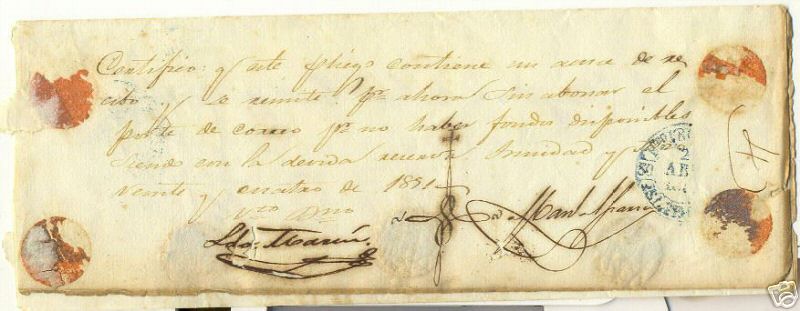 Certifico: q este pliego contiene un acuse de re
cibo y se remite pr ahora sin abonar el
porte de correo pr no haber fondos disponibles
siendo con la devida reserva Trinidad y
veinte y cuatro de 1851
Vto Bno
Ldo Marin
Man
AB